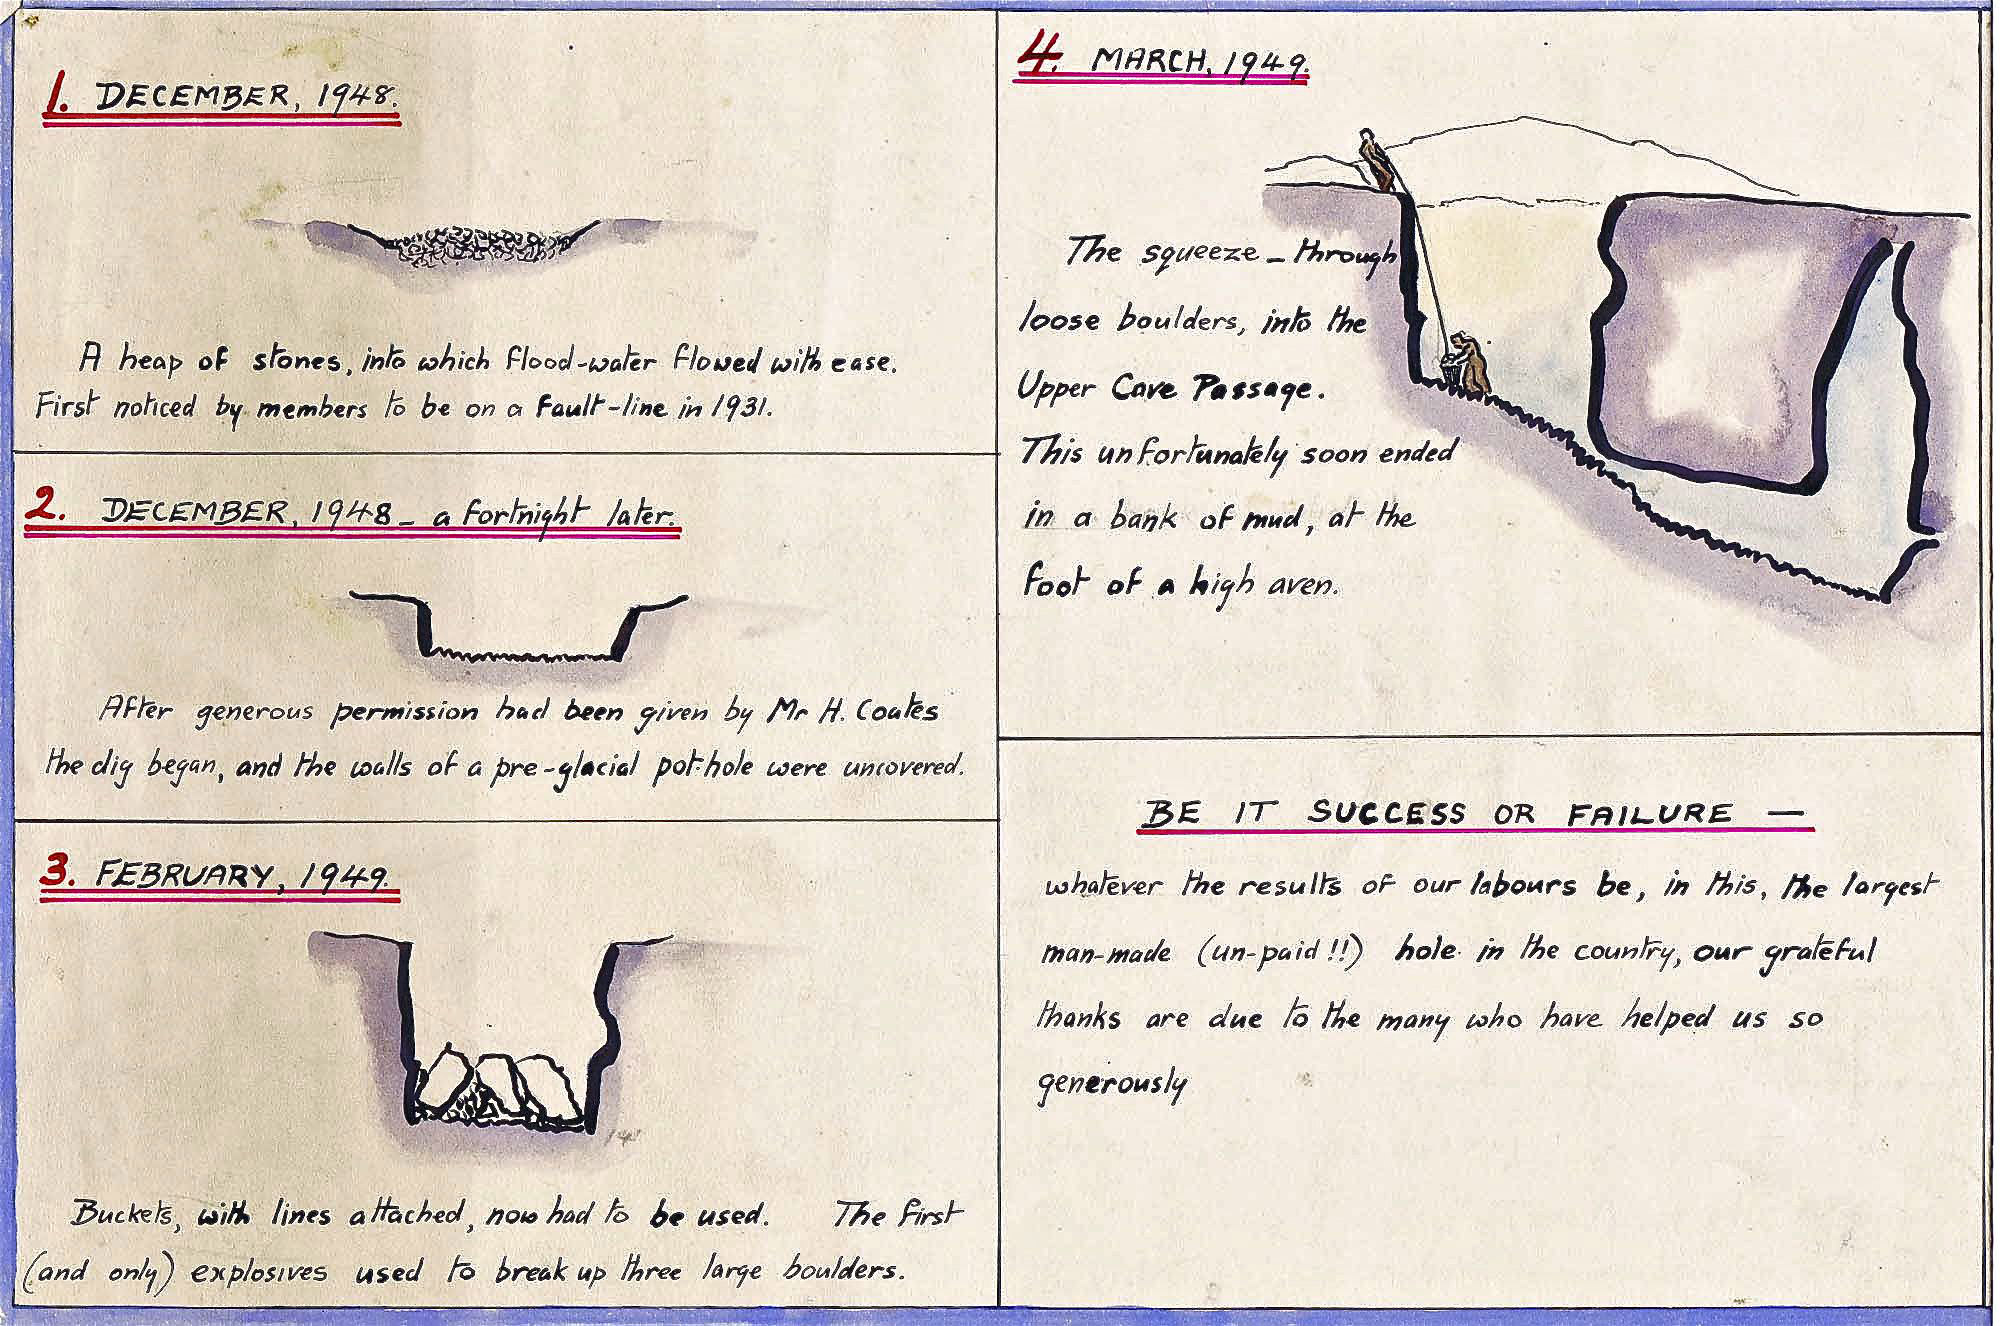 1. DECEMBER, 1948.
A heap of stones, into which flood-water flowed with ease.
First noticed by members to be on a fault-line in 1931.
2. DECEMBER, 1948 - a fortnight later.
After generous permission had been given by Mr H. Coates
the dig began, and the walls of a pre-glacial pot-hole were uncovered.
3. FEBRUARY, 1949.
Buckets, with lines attached, now had to be used. The first
(and only) explosives used to break up three large boulders.
4. MARCH, 1949.
The squeeze - through
loose boulders, into the
Upper Cave Passage.
This unfortunately soon ended
in a bank of mud, at the
foot of a high aven.
BE IT SUCCESS OR FAILURE —
whatever the results of our labours be, in this, the largest
man-made (un-paid!!) hole in the country, our grateful
thanks are due to the many who have helped us so
generously